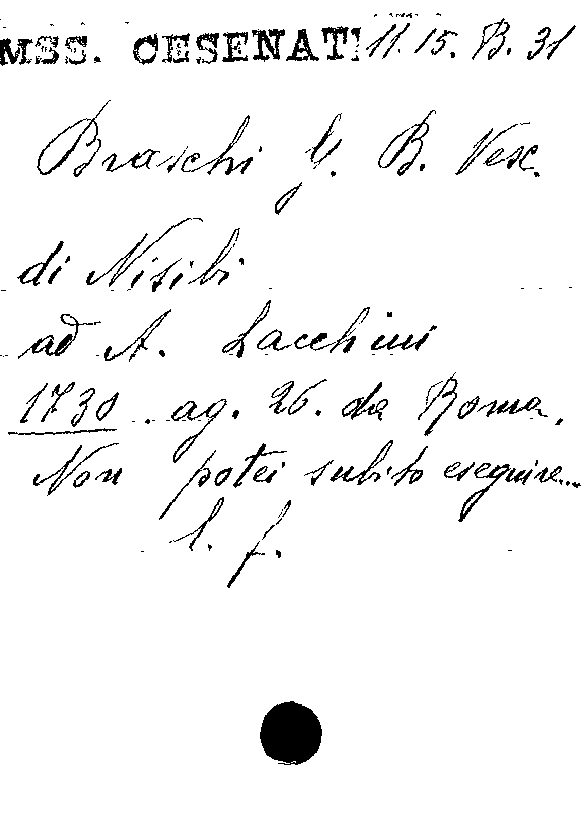 MSS. CESENATI 11.15. B. 31
Braschi G. B. Vesc.
di Nisibi
ad A. Lacchini
1730. ag. 26. da Roma.
Non potei subito eseguire...
l. f.